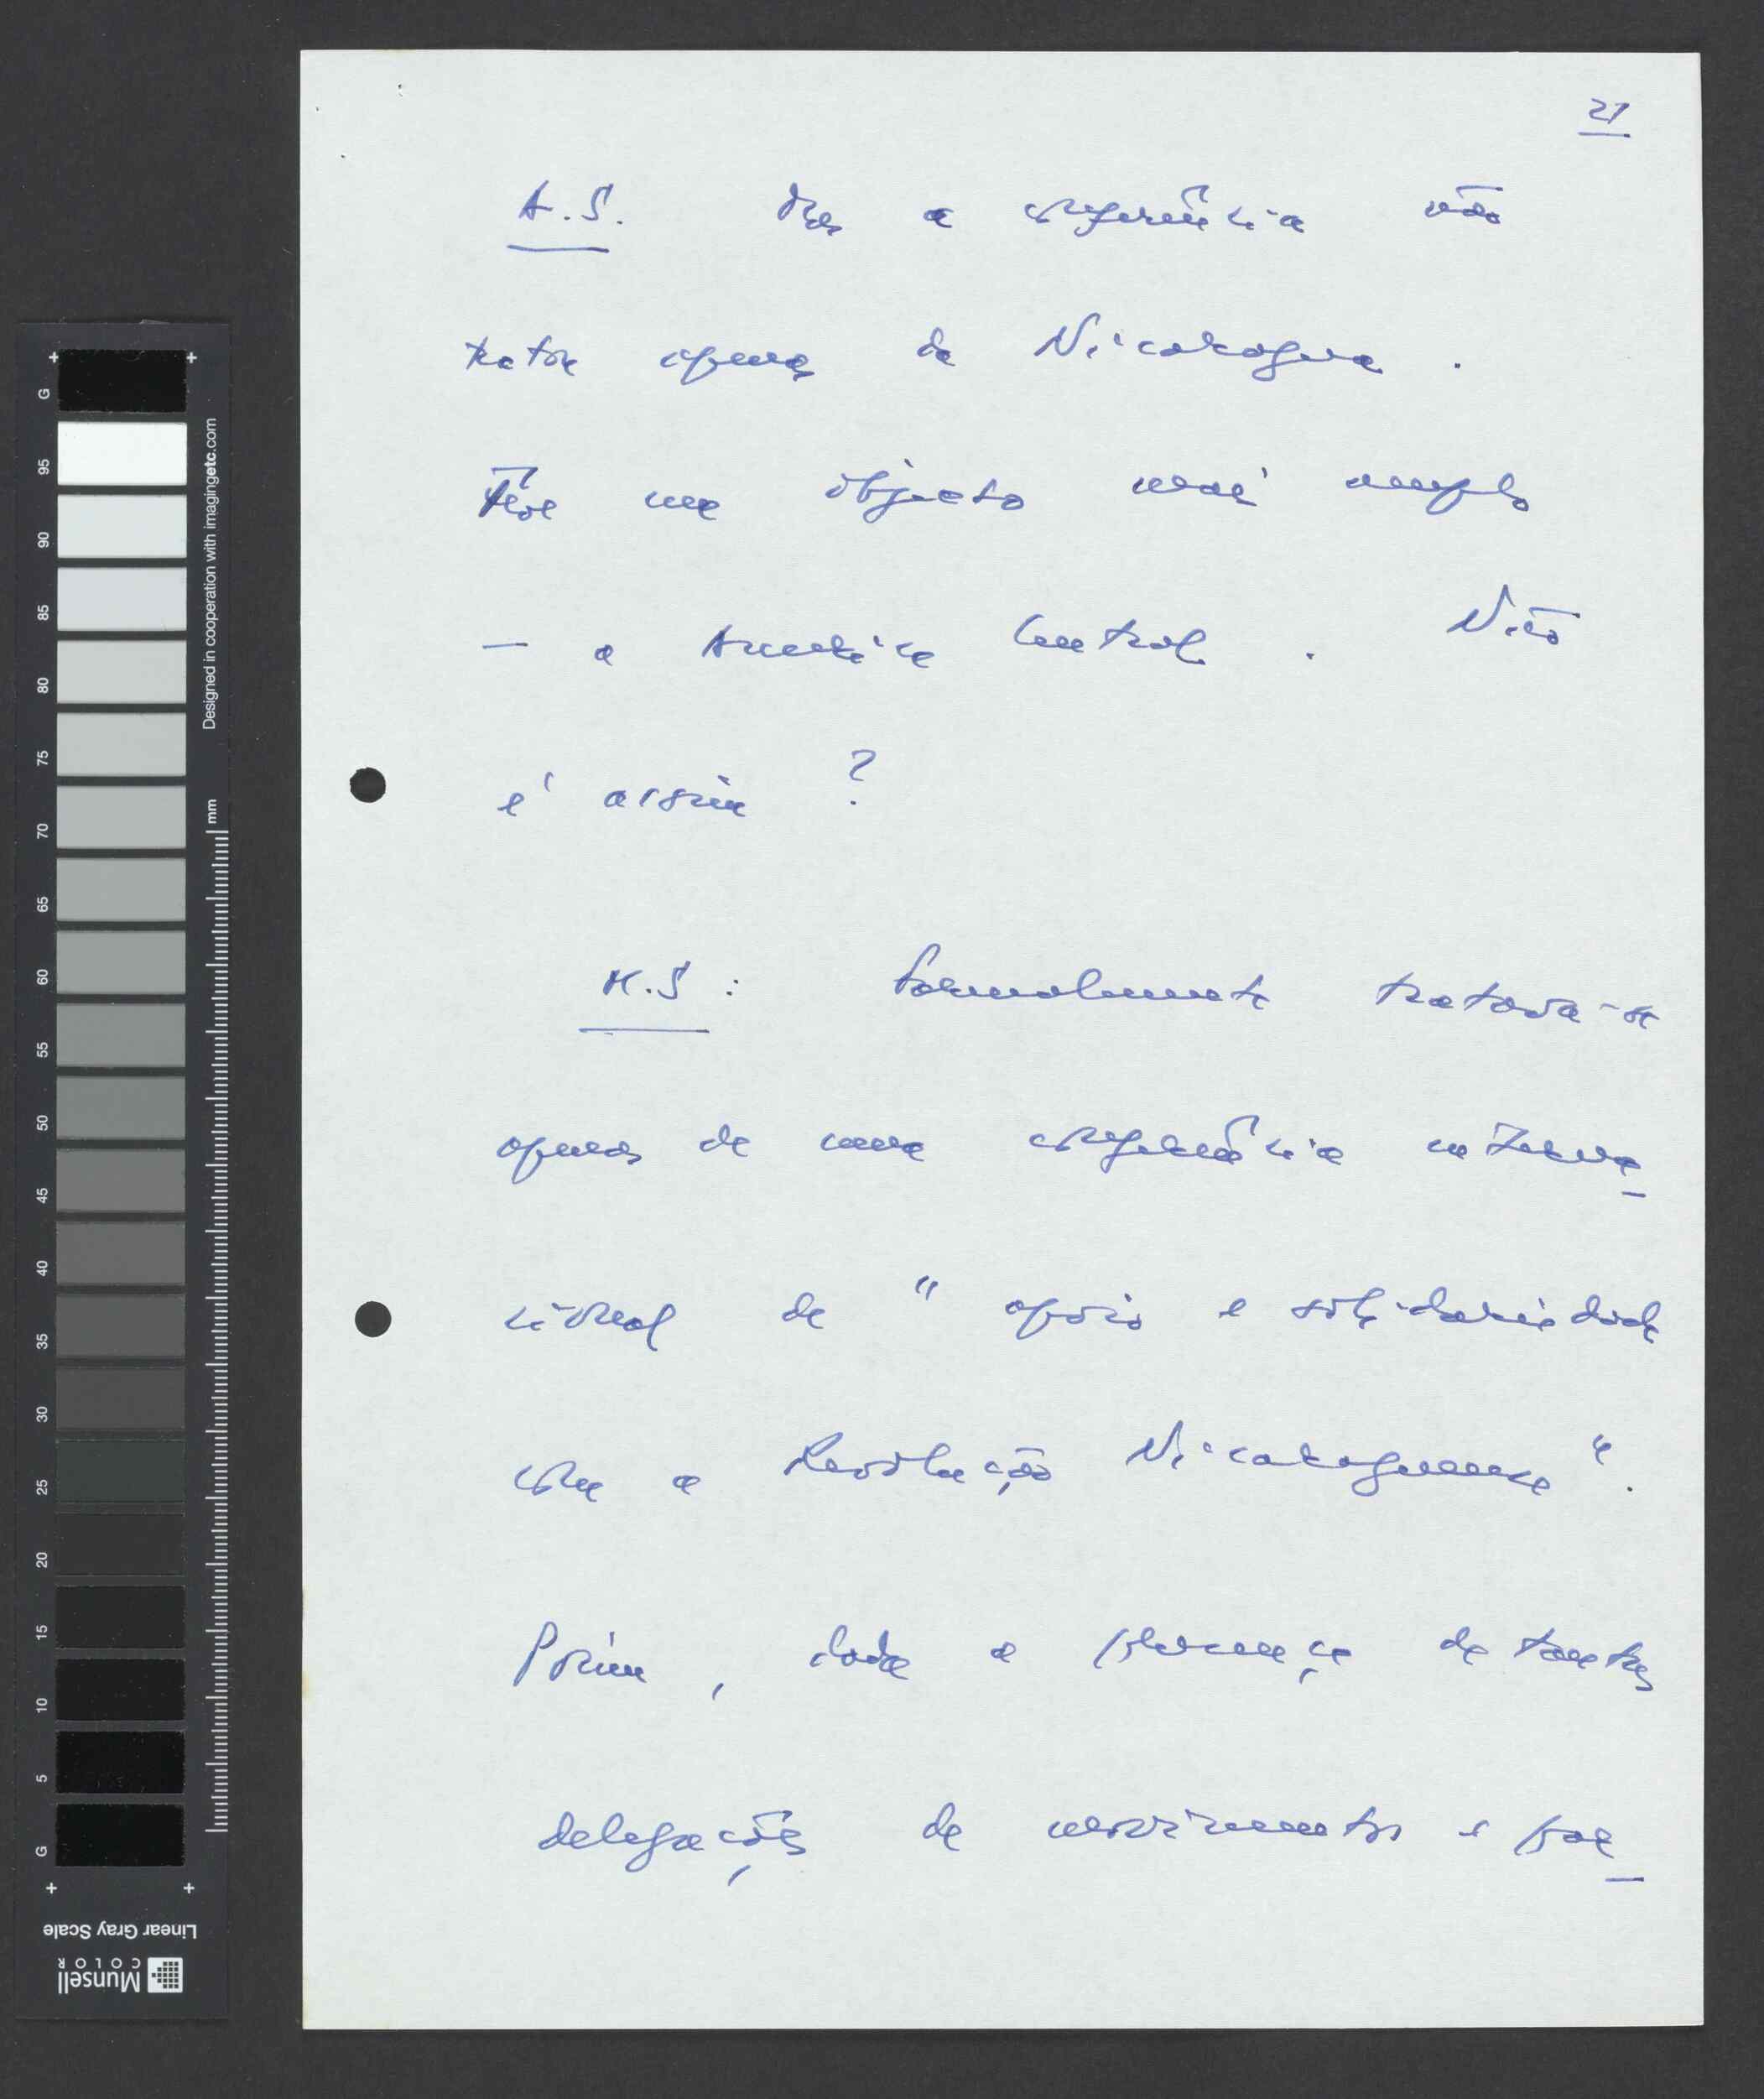 21
A.S. Mas a conferência não
tratou apenas da Nicarágua .
Teve um objecto mais amplo
— a América Central . Não
é assim ?
M.S : Formalmente tratava-se
apenas de uma conferência interna_
cional de " apoio e solidariedade
com a Revolução Nicaraguense " .
Porém , dada a presença de tantas
delegações de movimentos e par_
G 95 90 85 80 75 70 65 60 55 50 45 40 35 30 25 20 15 10 5 G
Designed in cooperation with imagingetc.com
mm
Linear Gray Scale
Munsell
COLOR